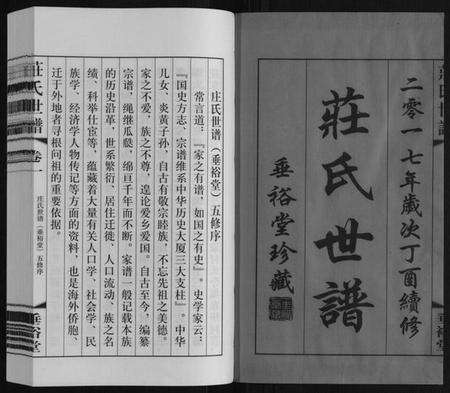 莊氏世譜
二零一七年歲次丁酉續修
莊氏世譜
垂裕堂珍藏
垂裕堂
庄氏世谱（垂裕堂）五修序
常言道：『家之有谱，如国之有史』。史学家云：
『国史方志、宗谱维系中华历史大厦三大支柱』。中华
儿女、炎黄子孙，自古有敬宗睦族，不忘先祖之美德。
家之不爱，族之不尊，遑论爱乡爱国。自古至今，编纂
宗谱，绳继瓜瓞，绵亘千年而不断。家谱一般记载本族
的历史沿革，世系繁衍、居住迁徙、人口流动，族之名
绩，科举仕宦等，蕴藏着大量有关人口学、社会学、民
族学、经济学人物传记等方面的资料，也是海外侨胞、
迁于外地者寻根问祖的重要依据。
莊氏世譜
卷一
庄氏世谱（垂裕堂）五修序
垂裕堂